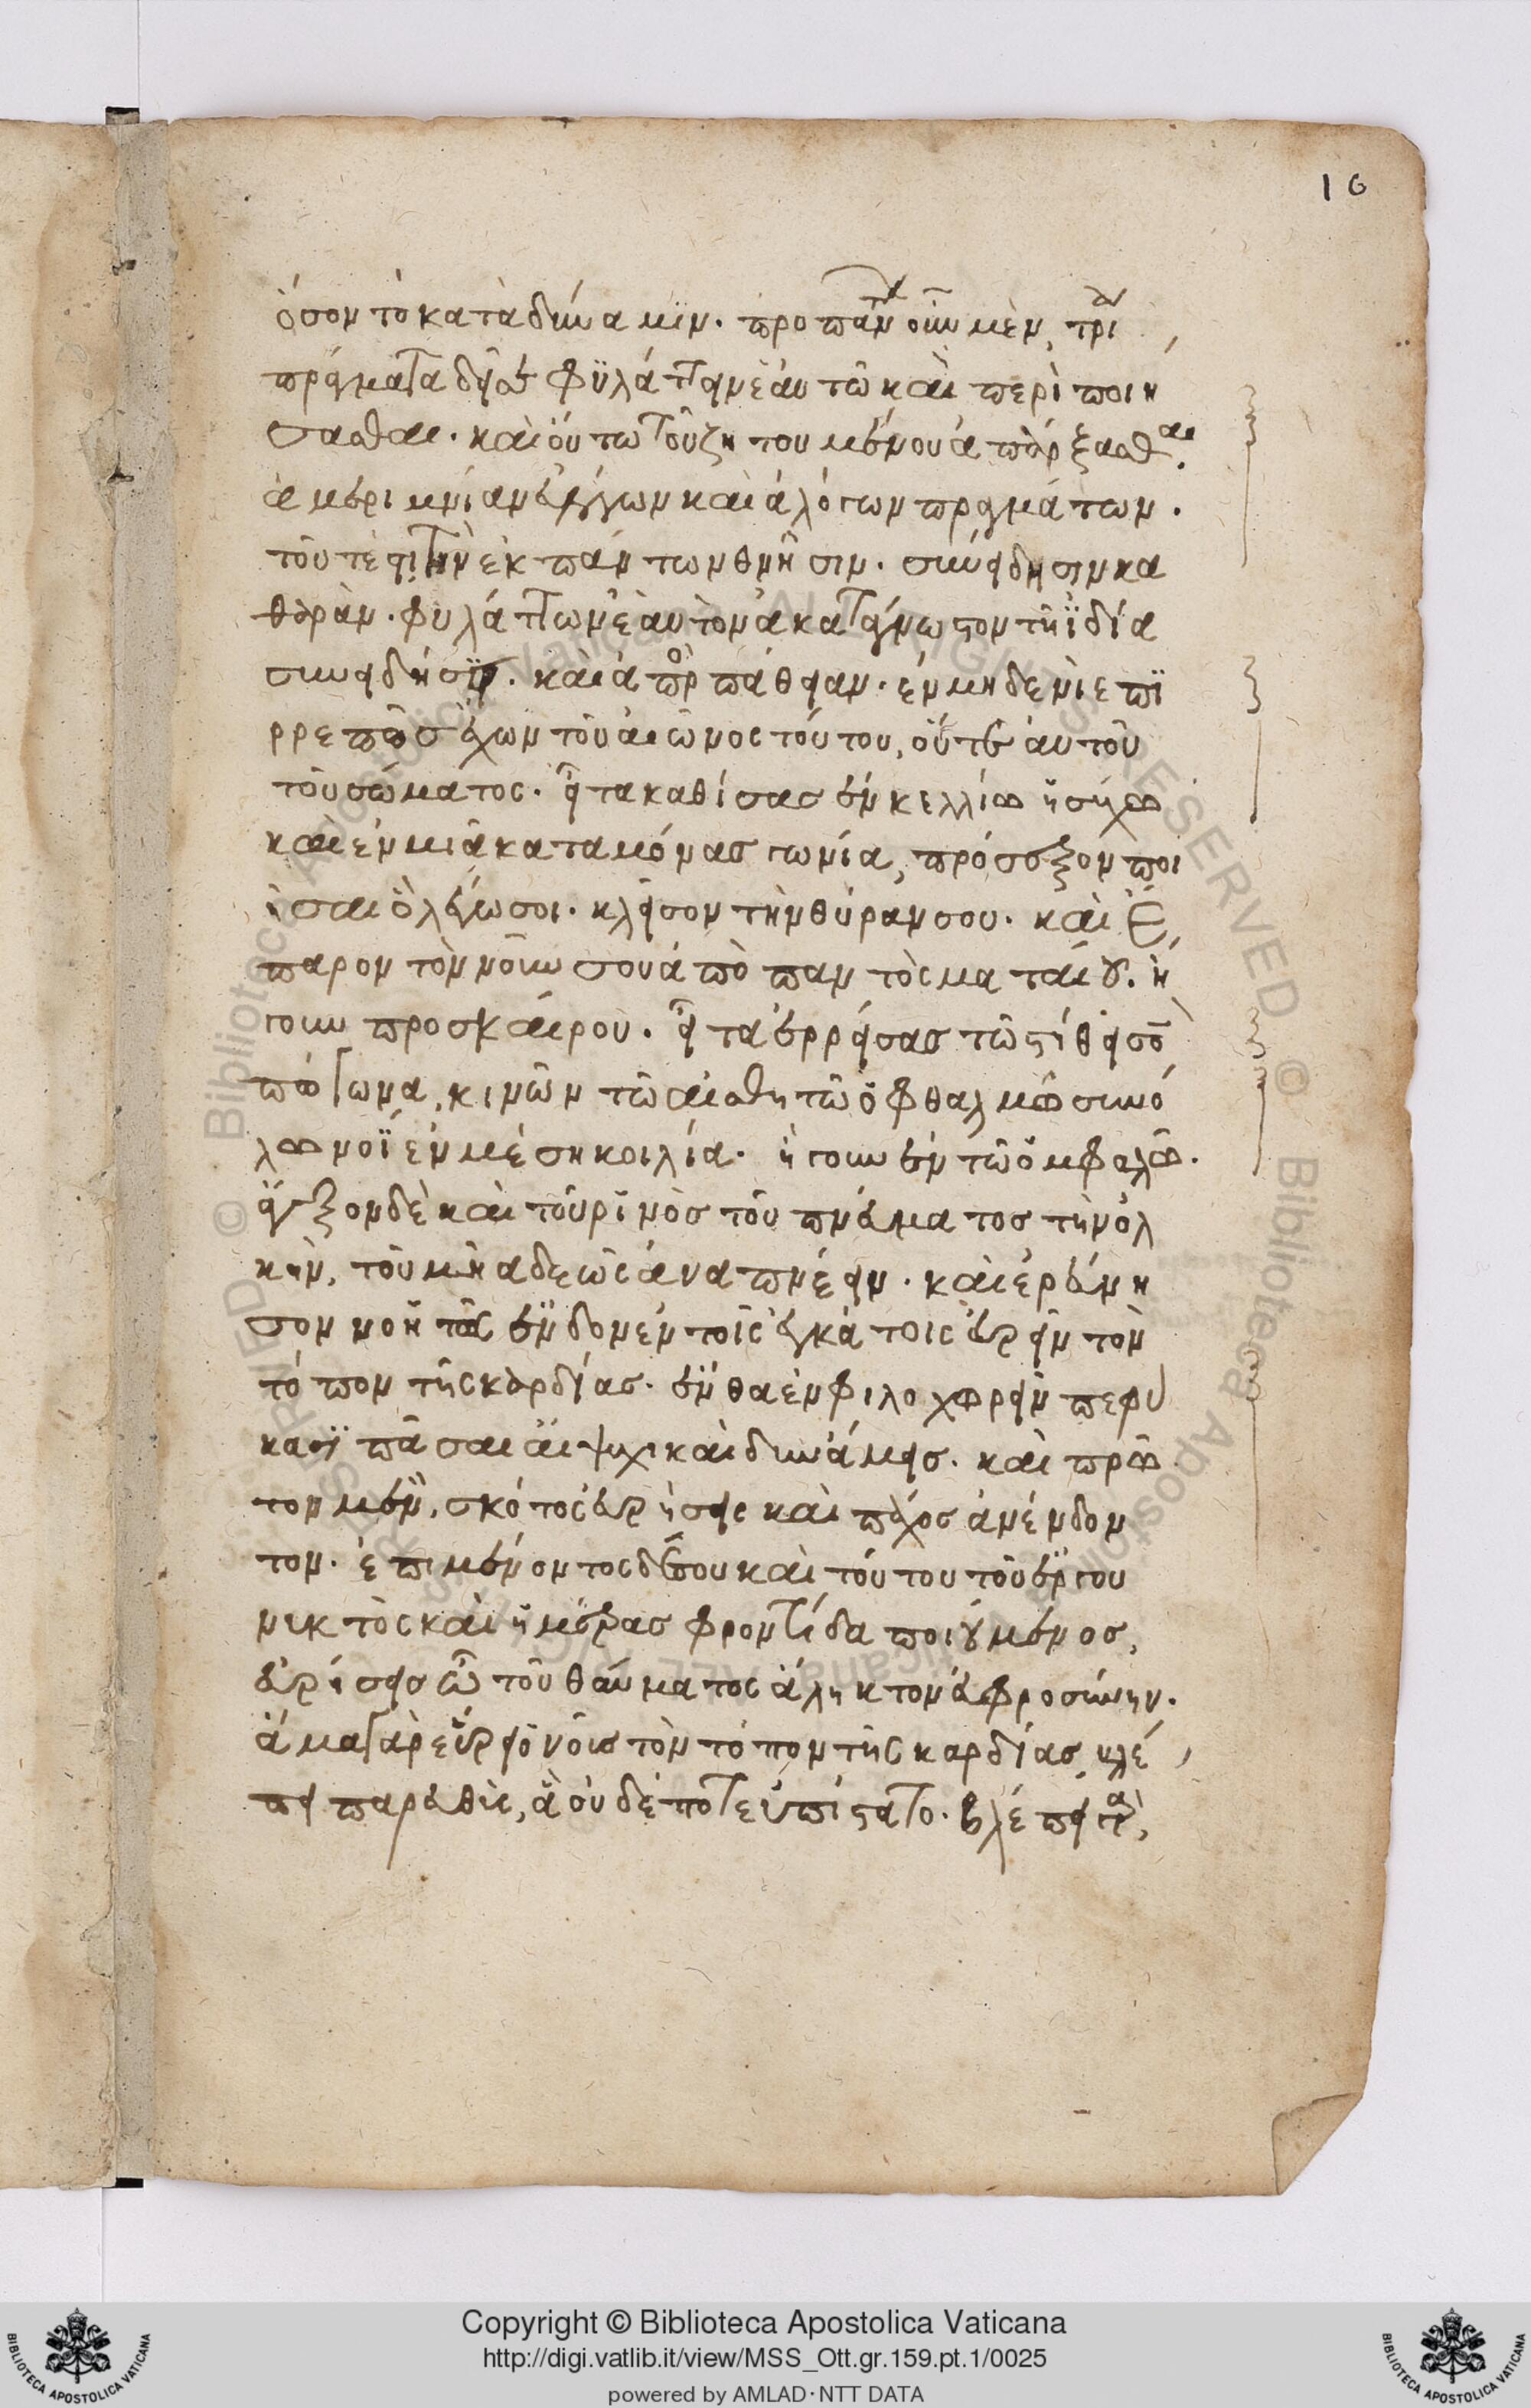 16
ὅσον τὸ κατὰ δύναμϊν. πρὸ πάντων οὖν μὲν, τρία
πράγματα δέον φϋλάττειν ἑαυτῶ καὶ περιποιη
σασθαι. καὶ οὕτω τοῦ ζητουμένου ἀπάρξασθαι.
ἀμεριμνίαν εὐλόγων καὶ ἀλόγων πραγμάτων.
τοῦτέστι τὴν ἐκ πάντων θνῆσιν. συνείδησιν κα
θαρὰν. φυλάττων ἑαυτὸν ἀκατάγνωστον τῆ ἰδία
συνειδήσει. καὶ ἀπροσπάθειαν. ἐν μηδενὶ ἐπϊ
ρρεπῶς ἔχων τοῦ αἰῶνος τούτου, οὔτε αὐτοῦ
τοῦ σώματος. εἶτα καθίσας ἐν κελλίω ἡσύχω
καὶ ἐν μιᾶ καταμόνας γωνία, πρόσεξον ποι
ῆσαι ὃ λέγω σοι. κλεῖσον τὴν θύραν σου. καὶ ἔ
παρον τὸν νοῦν σου ἀπὸ παντὸς ματαίου. ἤ
γουν προσκαίρου. εἶτα ἐρρείσας τῶ στήθει σου
πώγωνα, κινῶν τῶ αἰσθητῶ ὀφθαλμῶ σὺν ὅ
λω νοῒ ἐν μέση κοιλία. ἤγουν ἐν τῶ ὀμφαλῶ.
ἄγξον δὲ καὶ τοῦ ρϊνὸς τοῦ πνεύματος τὴν ὁλ
κὴν, τοῦ μὴ ἀδεῶς ἀναπνέειν. καὶ ἐρεύνη
σον νοητῶς ἔνδον ἐν τοῖς ἐγκάτοις εὑρεῖν τὸν
τόπον τῆς καρδίας. ἔνθα ἐμφιλοχωρεῖν πεφύ
κασϊ πᾶσαι αἱ ψυχικαὶ δυνάμεις. καὶ πρῶ
τον μὲν, σκότος εὑρήσεις καὶ πάχος ἀνένδο
τον. ἐπιμένοντος δέ σου καὶ τούτου τοῦ ἔργου
νυκτὸς καὶ ἡμέρας φροντίδα ποιούμενος,
εὑρήσεις ὢ τοῦ θαύματος ἄληκτον εὐφροσύνην.
ἅμα γὰρ εὕρει ὁ νοῦς τὸν τόπον τῆς καρδίας, βλέ
πει παρευθὺς, ἃ οὐδέποτε ἠπίστατο. βλέπει γὰρ,
Copyright © Biblioteca Apostolica Vaticana
http://digi.vatlib.it/view/MSS_Ott.gr.159.pt.1/0025
powered by AMLAD·NTT DATA